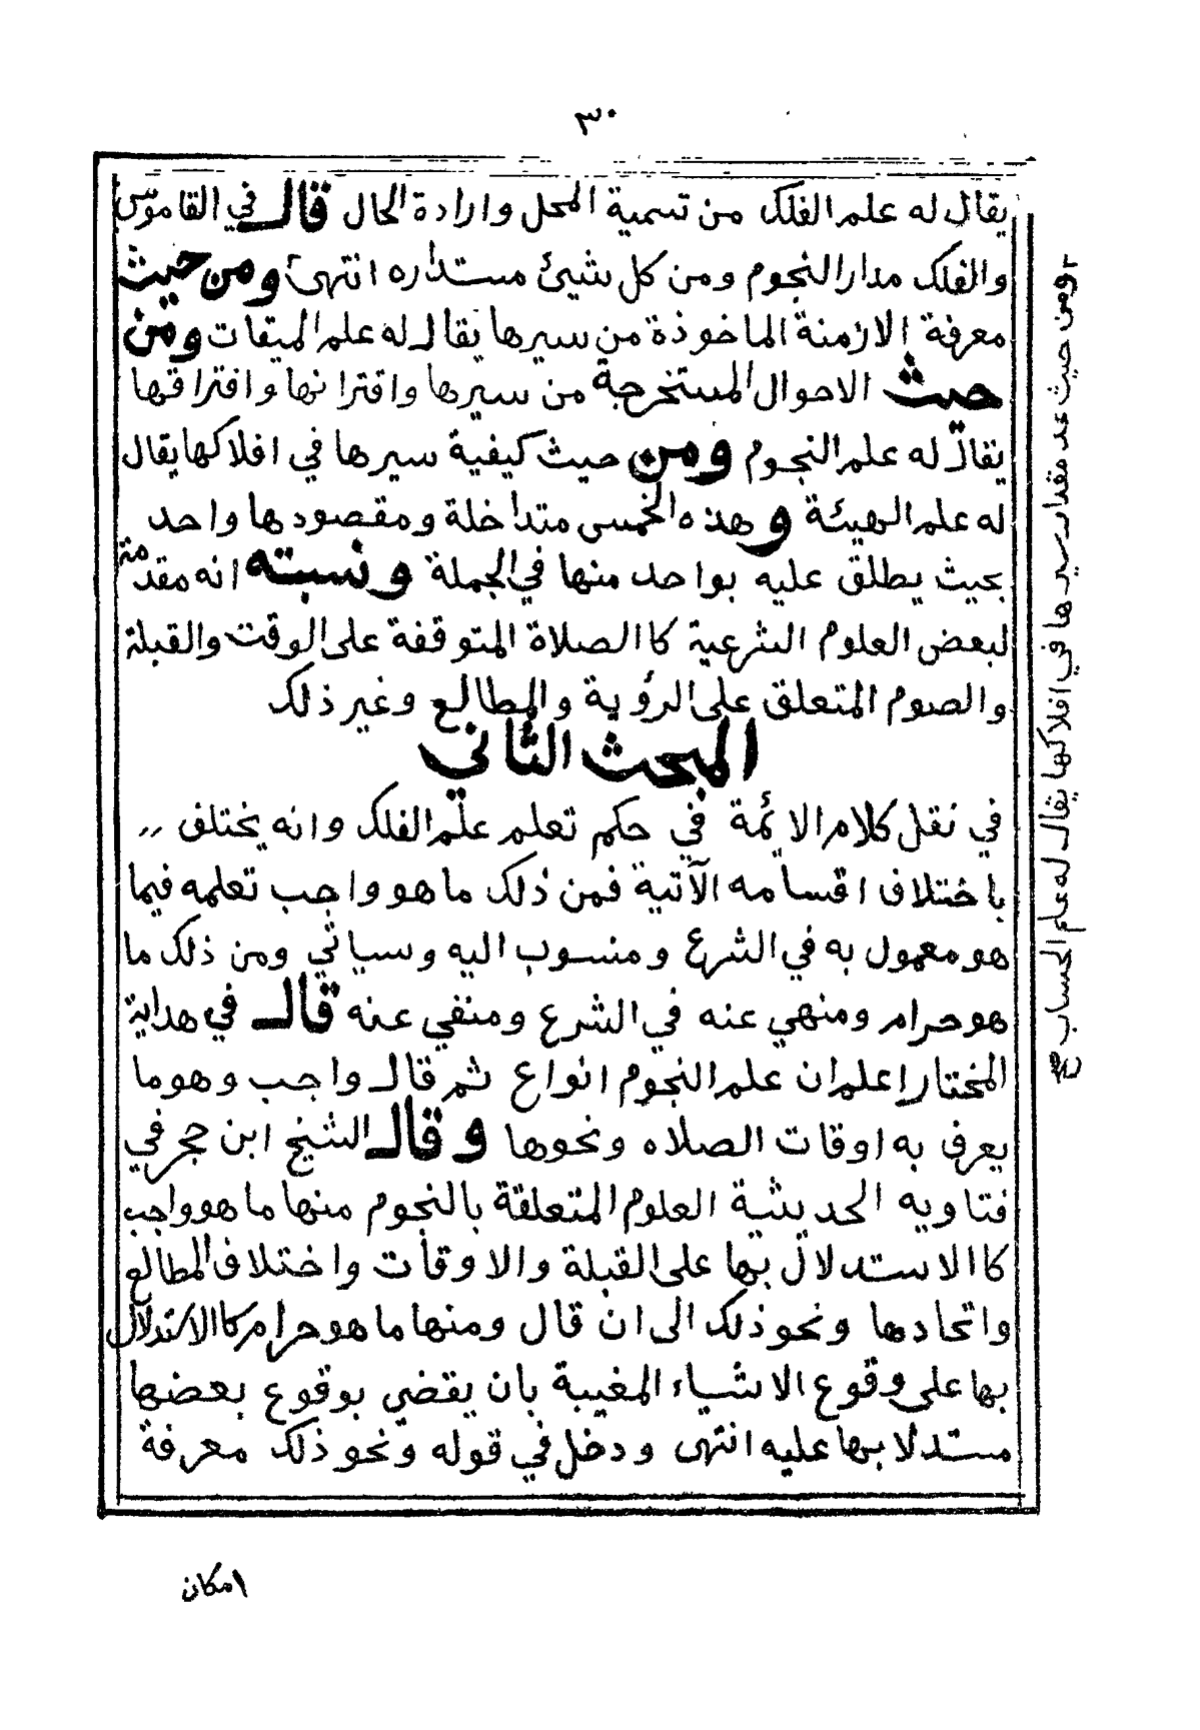 ٣٠
يقال له علم الفلك من تسمية المحل وارادة الحال قال في القاموس
والفلك مدار النجوم ومن كل شيئ مستداره انتهى ومن حيث
معرفة الازمنة الماخوذة من سيرها يقال له علم الميقات ومن
حيث الاحوال المستخرجة من سيرها واقترانها وافتراقها
يقال له علم النجوم ومن حيث كيفية سيرها في افلاكها يقال
له علم الهيئة وهذه الخمس متداخلة ومقصودها واحد
بحيث يطلق عليه بواحد منها في الجملة ونسبته انه مقدمة
لبعض العلوم الشرعية كاالصلاة المتوقفة على الوقت والقبلة
والصوم المتعلق على الرؤية والمطالع وغير ذلك
المبحث الثاني
في نقل كلام الائمة في حكم تعلم علم الفلك وانه يختلف ,,
باختلاف اقسامه الآتية فمن ذلك ما هو واجب تعلمه فيما
هو معمول به في الشرع ومنسوب اليه وسياتي ومن ذلك ما
هو حرام ومنهي عنه في الشرع ومنفي عنه قال في هداية
المختار اعلم ان علم النجوم انواع ثم قال واجب وهو ما
يعرف به اوقات الصلاه ونحوها وقال الشيخ ابن حجر في
فتاويه الحديثية العلوم المتعلقة بالنجوم منها ما هو واجب
كاالاستدلال بها على القبلة والاوقات واختلاف المطالع
واتحادها ونحو ذلك الى ان قال ومنها ما هو حرام كاالاستدلال
بها على وقوع الاشياء المغيبة بان يقضي بوقوع بعضها
مستدلا بها عليه انتهى ودخل في قوله ونحو ذلك معرفة
امكان
ومن حيث عد مقدار سيرها في افلاكها يقال له علم الحساب صح